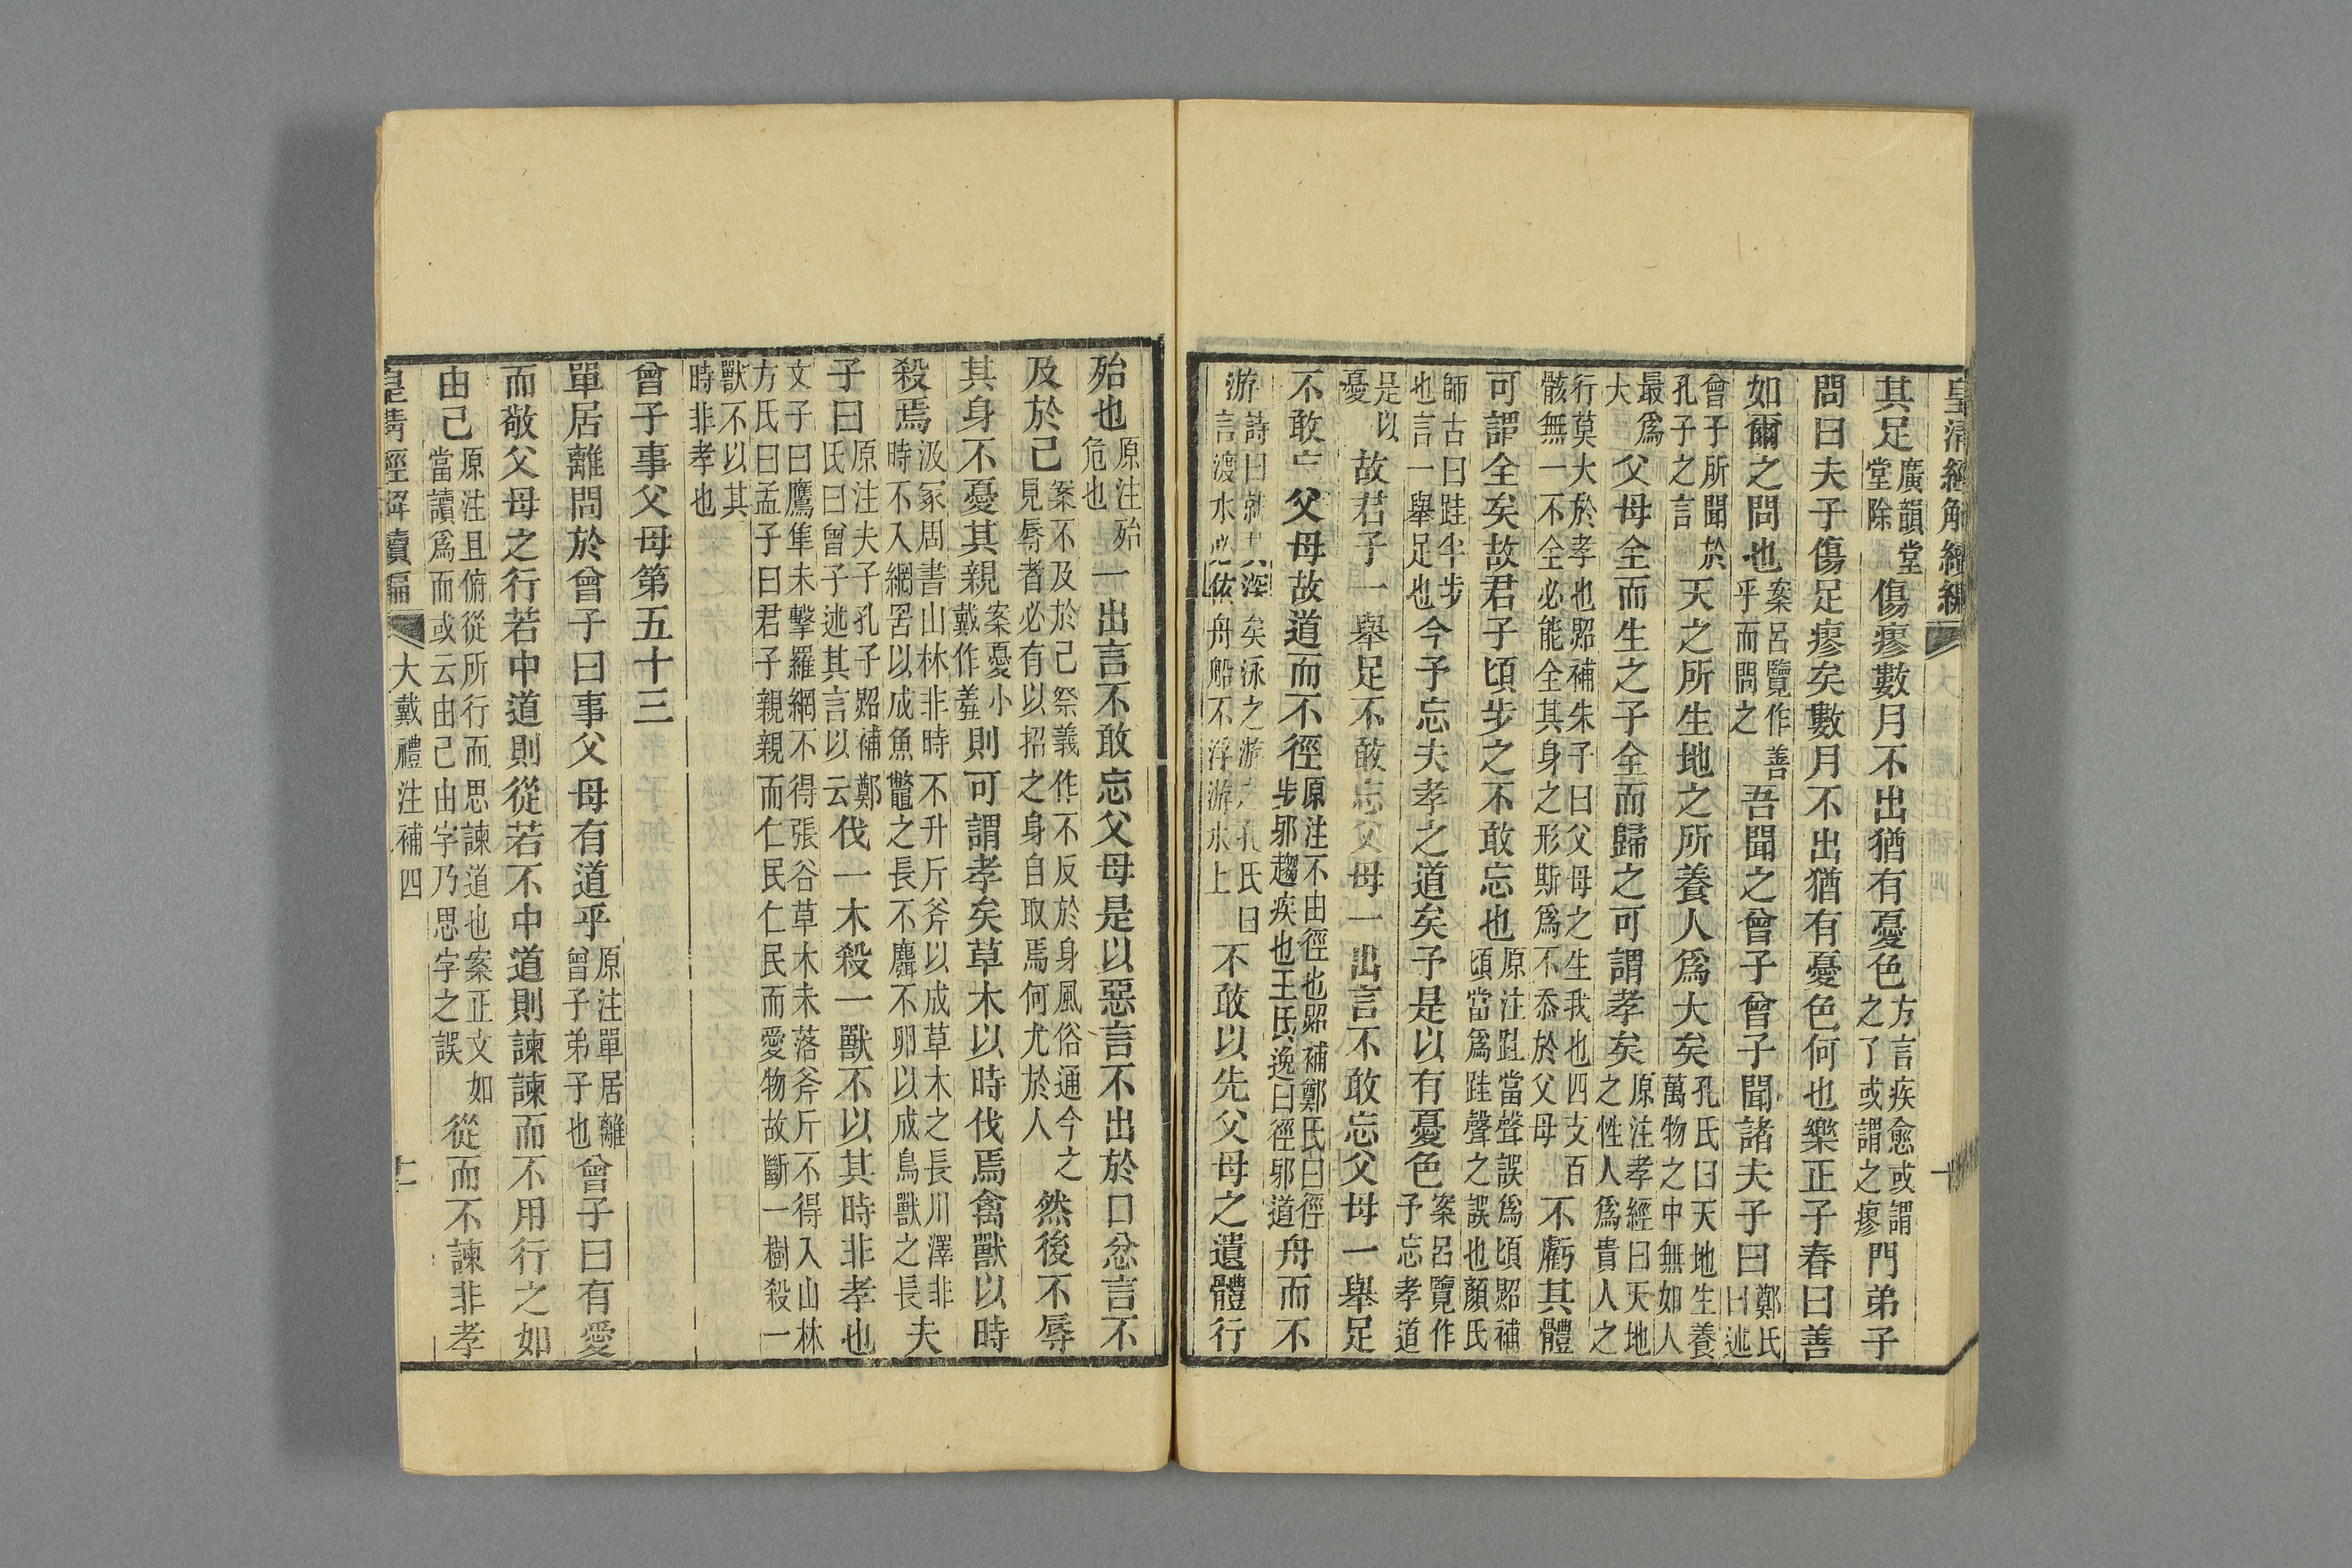 皇清經解續編 大戴禮注補四 十
其足廣韻堂堂除傷瘳數月不出猶有憂色方言疾愈或謂之了或謂之瘳門弟子
問曰夫子傷足瘳矣數月不出猶有憂色何也樂正子春曰善
如爾之問也案呂覽作善乎而問之吾聞之曾子曾子聞諸夫子曰鄭氏曰述
曾子所聞於孔子之言天之所生地之所養人爲大矣孔氏曰天地生養萬物之中無如人
最爲大父母全而生之子全而歸之可謂孝矣原注孝經曰天地之性人爲貴人之
行莫大於孝也照補朱子曰父母之生我也四支百骸無一不全必能全其身之形斯爲不忝於父母不虧其體
可謂全矣故君子頃步之不敢忘也原注跬當聲誤爲頃照補頃當爲跬聲之誤也顏氏
師古曰跬半步也言一舉足也今予忘夫孝之道矣予是以有憂色案呂覽作予忘孝道
是以憂故君子一舉足不敢忘父母一出言不敢忘父母一舉足
不敢忘父母故道而不徑原注不由徑也照補鄭氏曰徑步邪趨疾也王氏逸曰徑邪道舟而不
游詩曰就其深矣泳之游之孔氏曰言渡水必依舟船不浮游水上不敢以先父母之遺體行
殆也原注殆危也一出言不敢忘父母是以惡言不出於口忿言不
及於己案不及於己祭義作不反於身風俗通今之見辱者必有以招之身自取焉何尤於人然後不辱
其身不憂其親案憂小戴作羞則可謂孝矣草木以時伐焉禽獸以時
殺焉汲冢周書山林非時不升斤斧以成草木之長川澤非時不入網罟以成魚鼈之長不麛不卵以成鳥獸之長夫
子曰原注夫子孔子照補鄭氏曰曾子述其言以云伐一木殺一獸不以其時非孝也
文子曰鷹隼未擊羅網不得張谷草木未落斧斤不得入山林方氏曰孟子曰君子親親而仁民仁民而愛物故斷一樹殺一
獸不以其時非孝也
曾子事父母第五十三
單居離問於曾子曰事父母有道乎原注單居離曾子弟子也曾子曰有愛
而敬父母之行若中道則從若不中道則諫諫而不用行之如
由己原注且俯從所行而思諫道也案正文如當讀爲而或云由己由字乃思字之誤從而不諫非孝
皇清經解續編 大戴禮注補四 十一